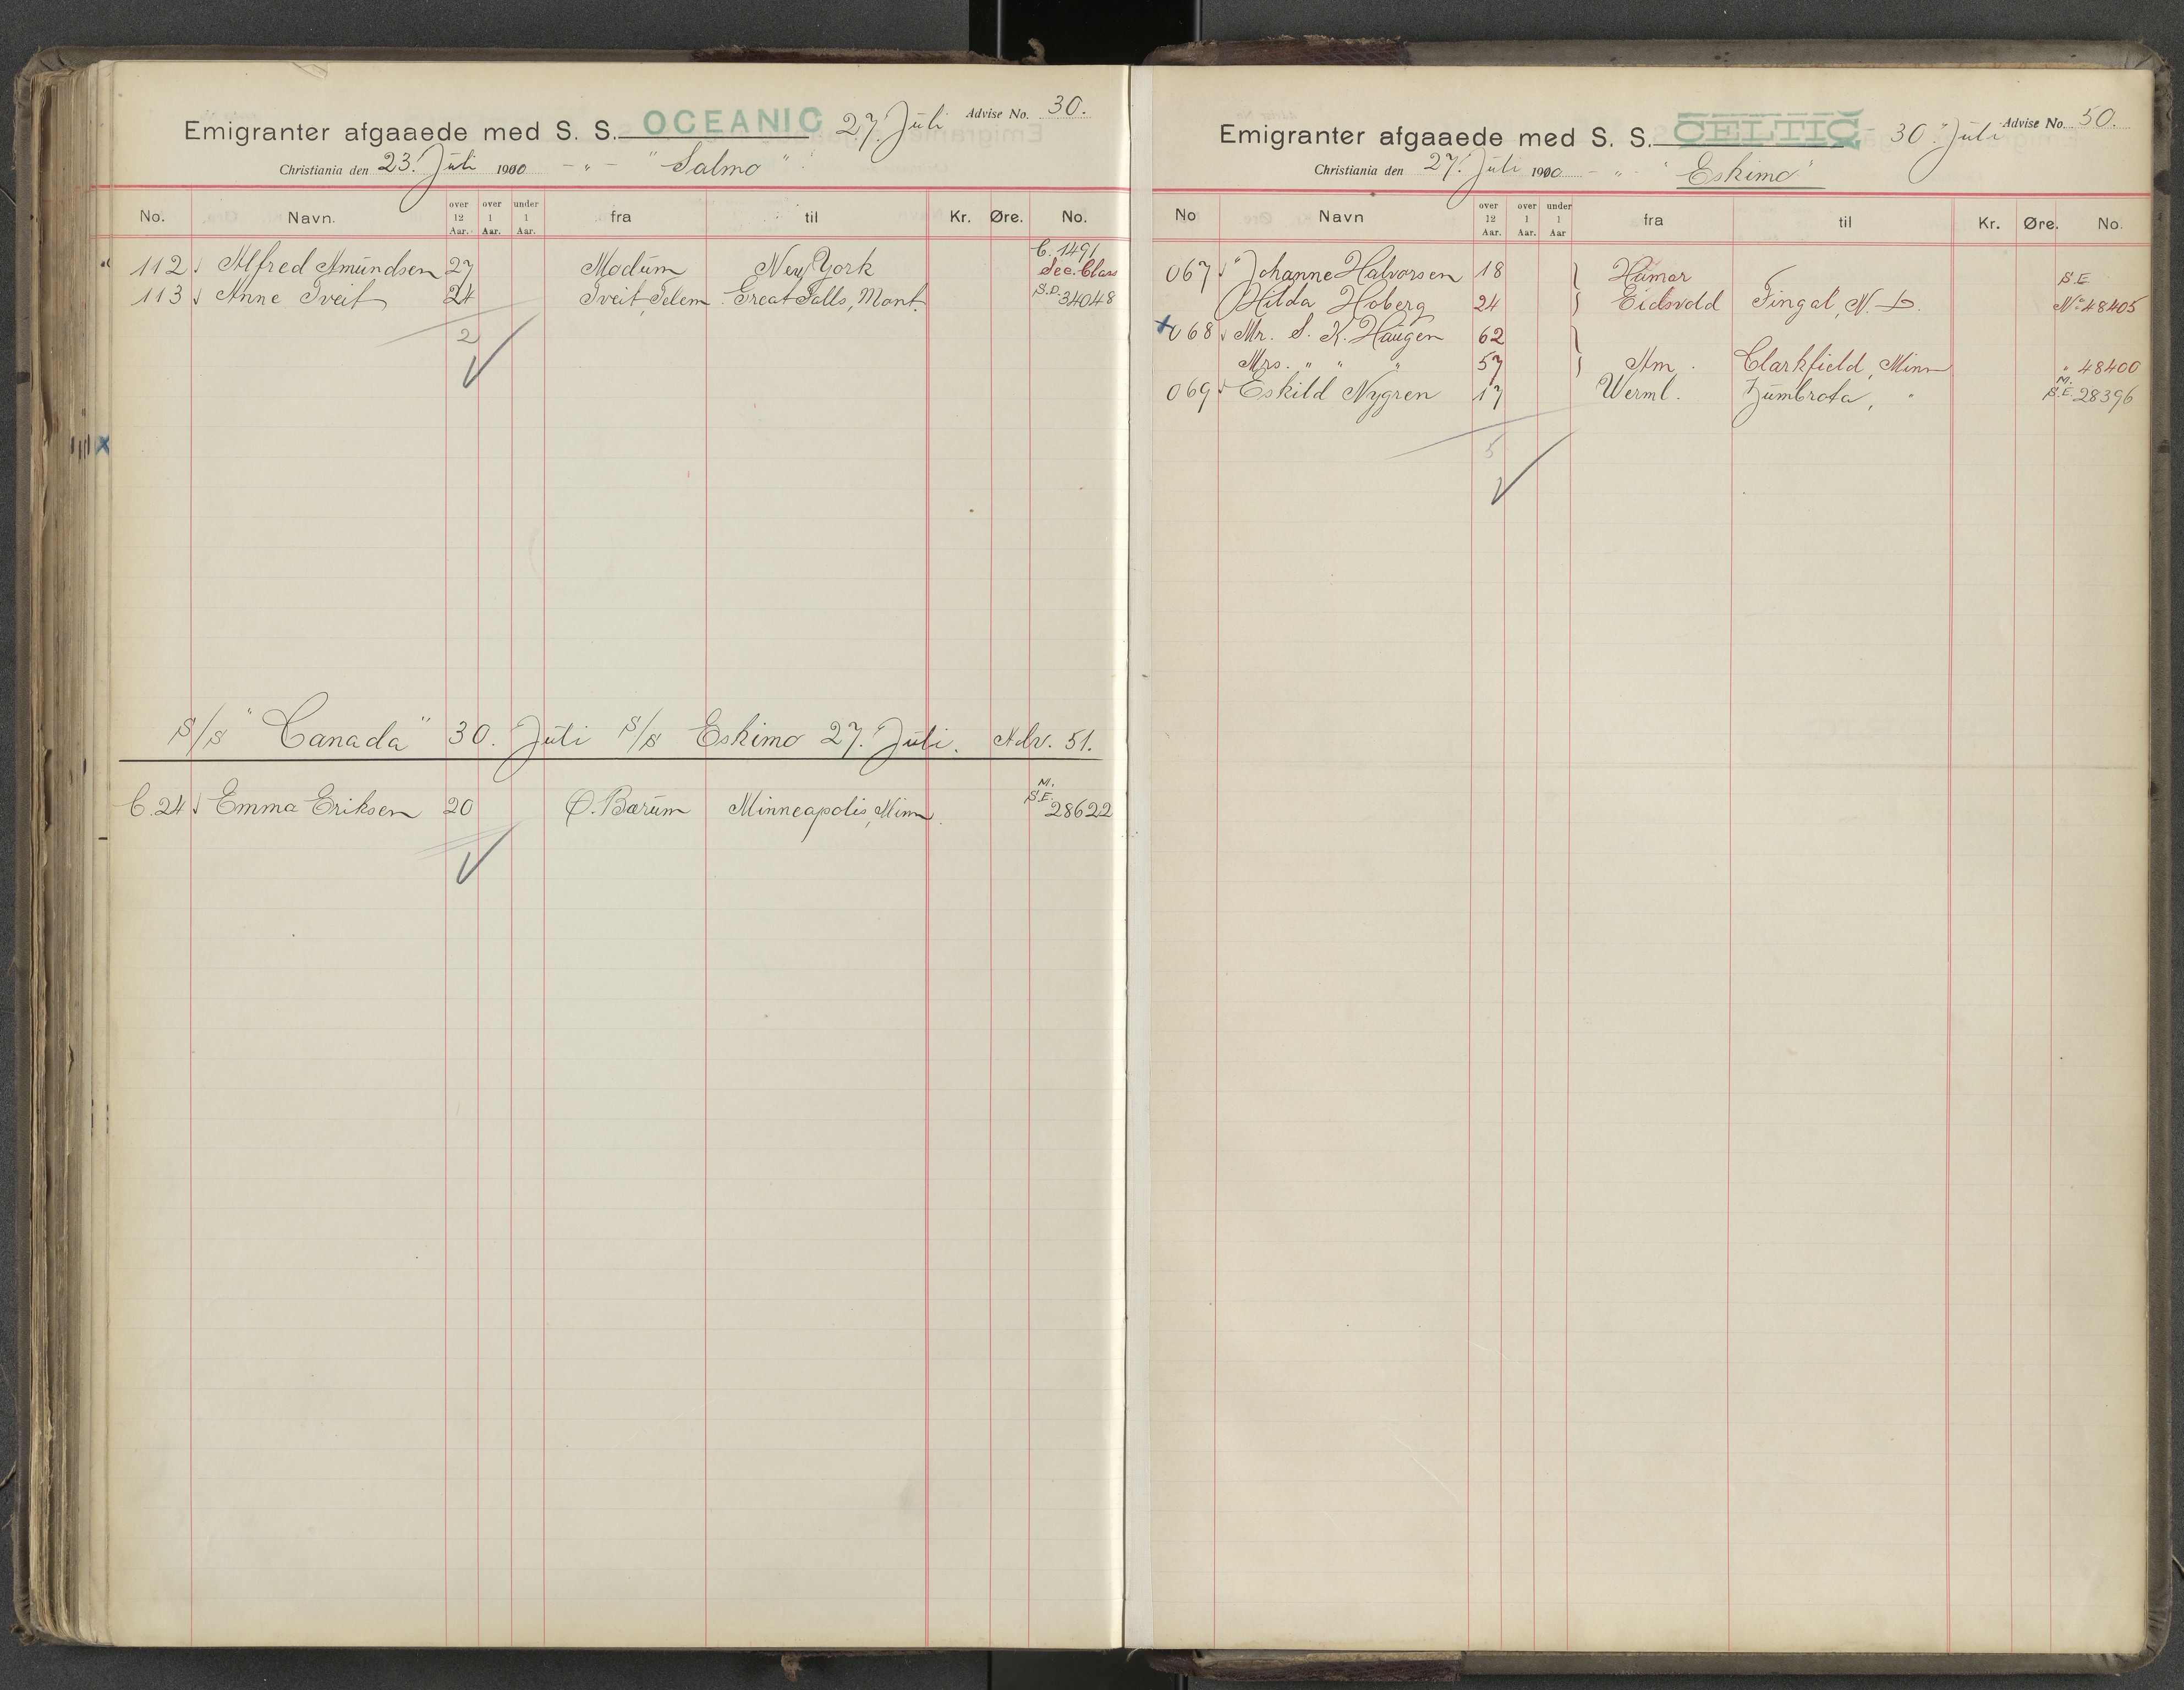 Emigranter afgaaede med S. S. OCEANIC 27. Juli Advise No. 30.
Christiania den 23. Juli 1900 - " - "Salmo"
No. Navn. over 12 Aar. over 1 Aar. under 1 Aar. fra til Kr. Øre. No.
112 Alfred Amundsen 27 Modum New York C. 1491 Sec. Class
113 Anne Tveit 24 Tveit, Telem. Great Falls, Mont. S.D. 34048
2
S/S "Canada" 30. Juli S/S Eskimo 27. Juli. Adv. 51.
C. 24 Emma Eriksen 20 Ø. Bærum Minneapolis, Minn. M. S.E. 28622
Emigranter afgaaede med S. S. CELTIC 30. Juli Advise No. 50.
Christiania den 27. Juli 1900 - " - "Eskimo"
No Navn over 12 Aar. over 1 Aar. under 1 Aar fra til Kr. Øre. No.
067 Johanne Halvorsen 18 } Hamar S.E
Hilda Hoberg 24 } Eidsvold Fingal, N.-D. No 48405
x 068 Mr. S. K. Haugen 62 }
Mrs. " " " 57 } Am. Clarkfield, Minn " 48400
069 Eskild Nygren 17 Werml. Zumbrota, " M. S.E. 28396
5